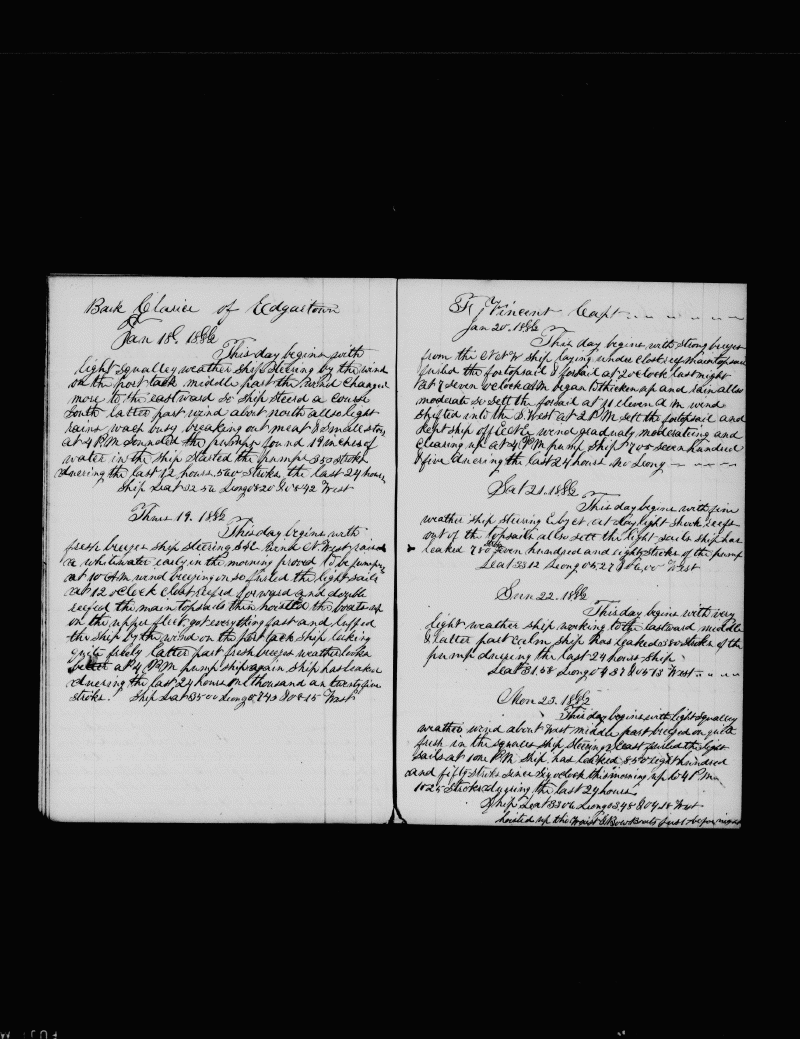 Bark Clarice of Edgartown
Jan 18. 1882
This day begins with
light squalley weather ship steering by the wind
on the port tack middle part the wind changed
more to the eastward so ship steerd a course
South latter part wind about north all so light
rains wach busy breaking out meat & small stores
at 4 P.M sounded the pumps found 19 inches of
water in the ship started the pumps 350 stroks
duering the last 12 hours 560 stroks the last 24 hours
Ship Lat 32.50 Long 08 20 to 0842 West
Thurs 19. 1882
This day begins with
fresh breezes ship steering wind N.West raised
a whitewater early in the morning proved to be jumpers
at 10 A M wind breezing on so furled the light sails
at 12 o clock close reefed forward and double
reefed the main topsails then hoisted the boats up
on the upper fleet got everything fast and luffed
the ship by the wind on the port tack ship laking
quite freely latter part fresh breezes weather looks
better at 4 P.M pump ship again ship has leaked
duering the last 24 hours one thousand an twenty five
stroks. Ship Lat 35 00 Long 0743 to 0815 West
F. Vincent Capt.
Jan 20. 1882
This day begins with strong breezes
from the N.N.W ship laying under close reef maintopsail
furled the fortopsail & forsail at 2 o clock last night
at 7 seven o clock A M began to thicken up and rain allso
moderate so sett the forsail at 11 eleven A m wind
shifted into the S.West at 2 P.M sett the fortopsail and
kept ship off E.N.E wind gradualy moderateing and
clearing up at 4 P M pump ship 705 seven hundred
& five duering the last 24 hours no Long
Sat 21. 1882
This day begins with fine
weather ship steering E by N. at daylight shook reefs
out of the topsails allso sett the light sails ship has
leaked 780 seven hundred and eighty stroks of the pump
Lat 33 12 Long 05,27 to 6,00 West
Sun 22. 1882
This day begins with very
light weather ship working to the eastward middle
& latter part calm ship has leaked 580 stroks of the
pump duering the last 24 hours Ship
Lat 31.58 Long 04 37 to 0513 West
Mon 23. 1882
This day begins with light squalley
weather wind about West middle part breezed on quite
fresh in the squales ship steering East furled the light
sails at 1 one P.M Ship has leaked 850 eight hundred
and fifty stroks since six o clock this morning up to 4 P M
1025 stroks duering the last 24 hours
Ship Lat 33 06 Long 03,48 to 0418 West
hoisted up the Waist & Bow Boats just before night